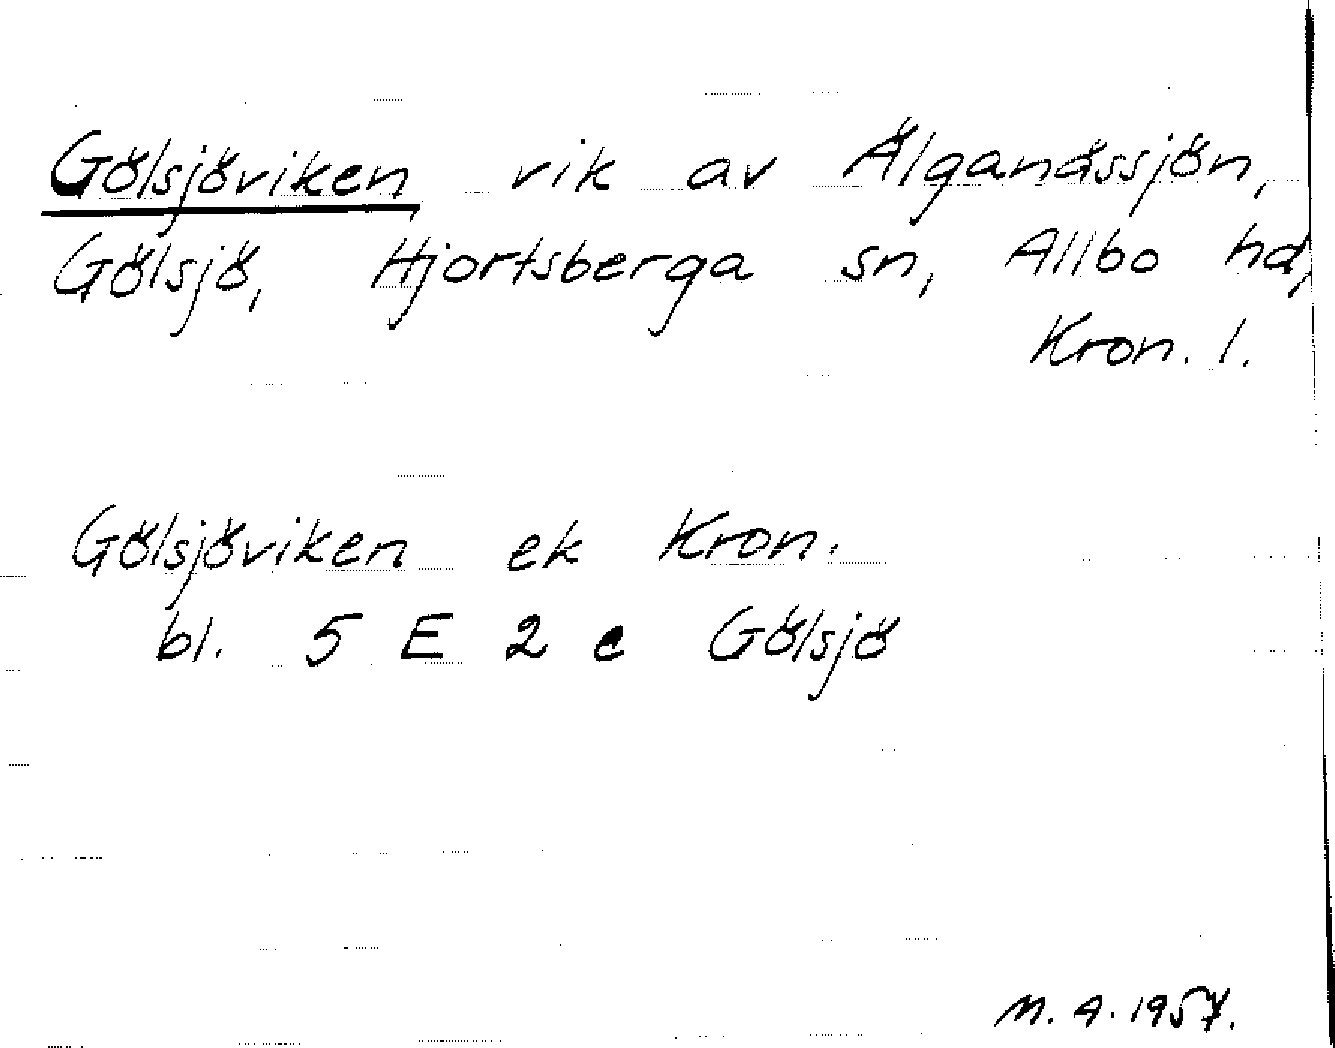 Gölsjöviken vik av Älganässjön,
Gölsjö, Hjortsberga sn, Allbo hd,
Kron. l.
Gölsjöviken ek Kron.
bl. 5 E 2 e Gölsjö
M. A. 1957.